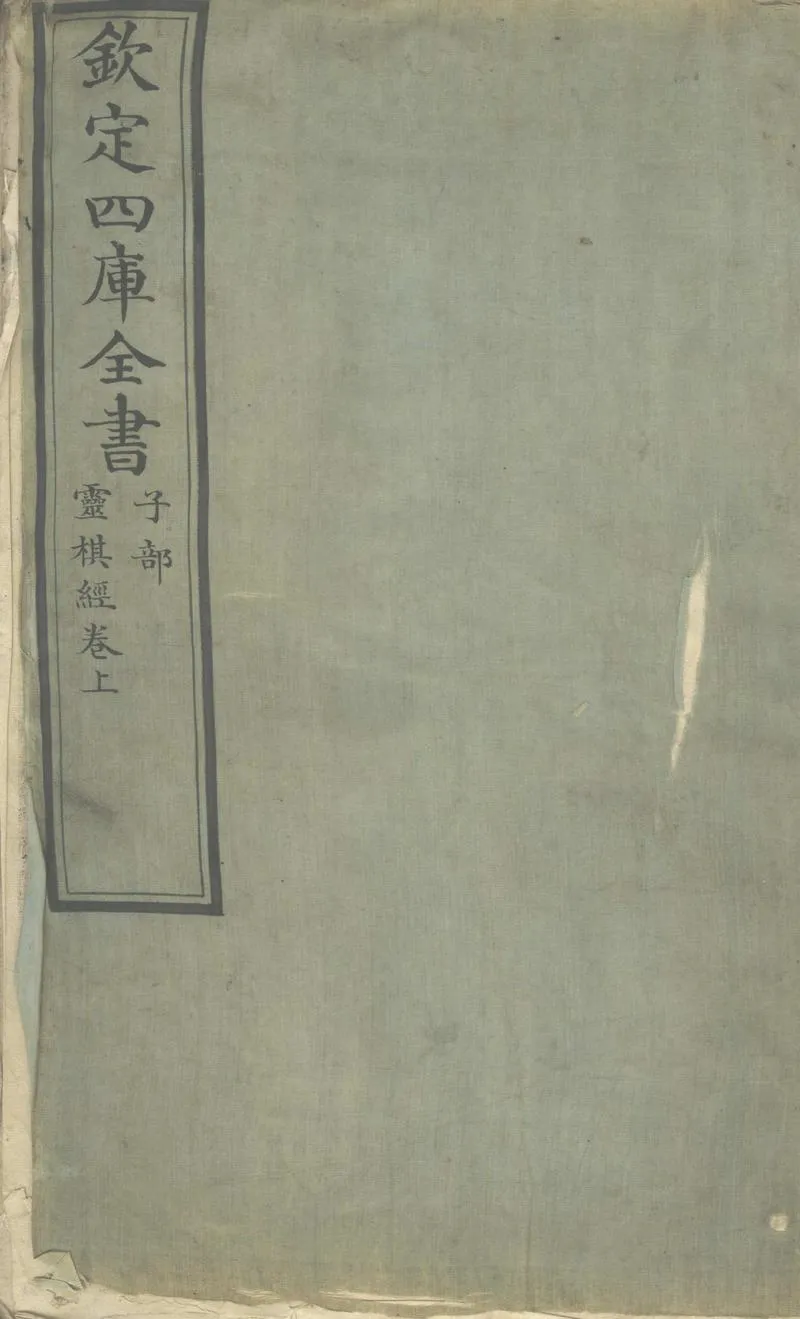 欽定四庫全書
子部
靈棋經卷上